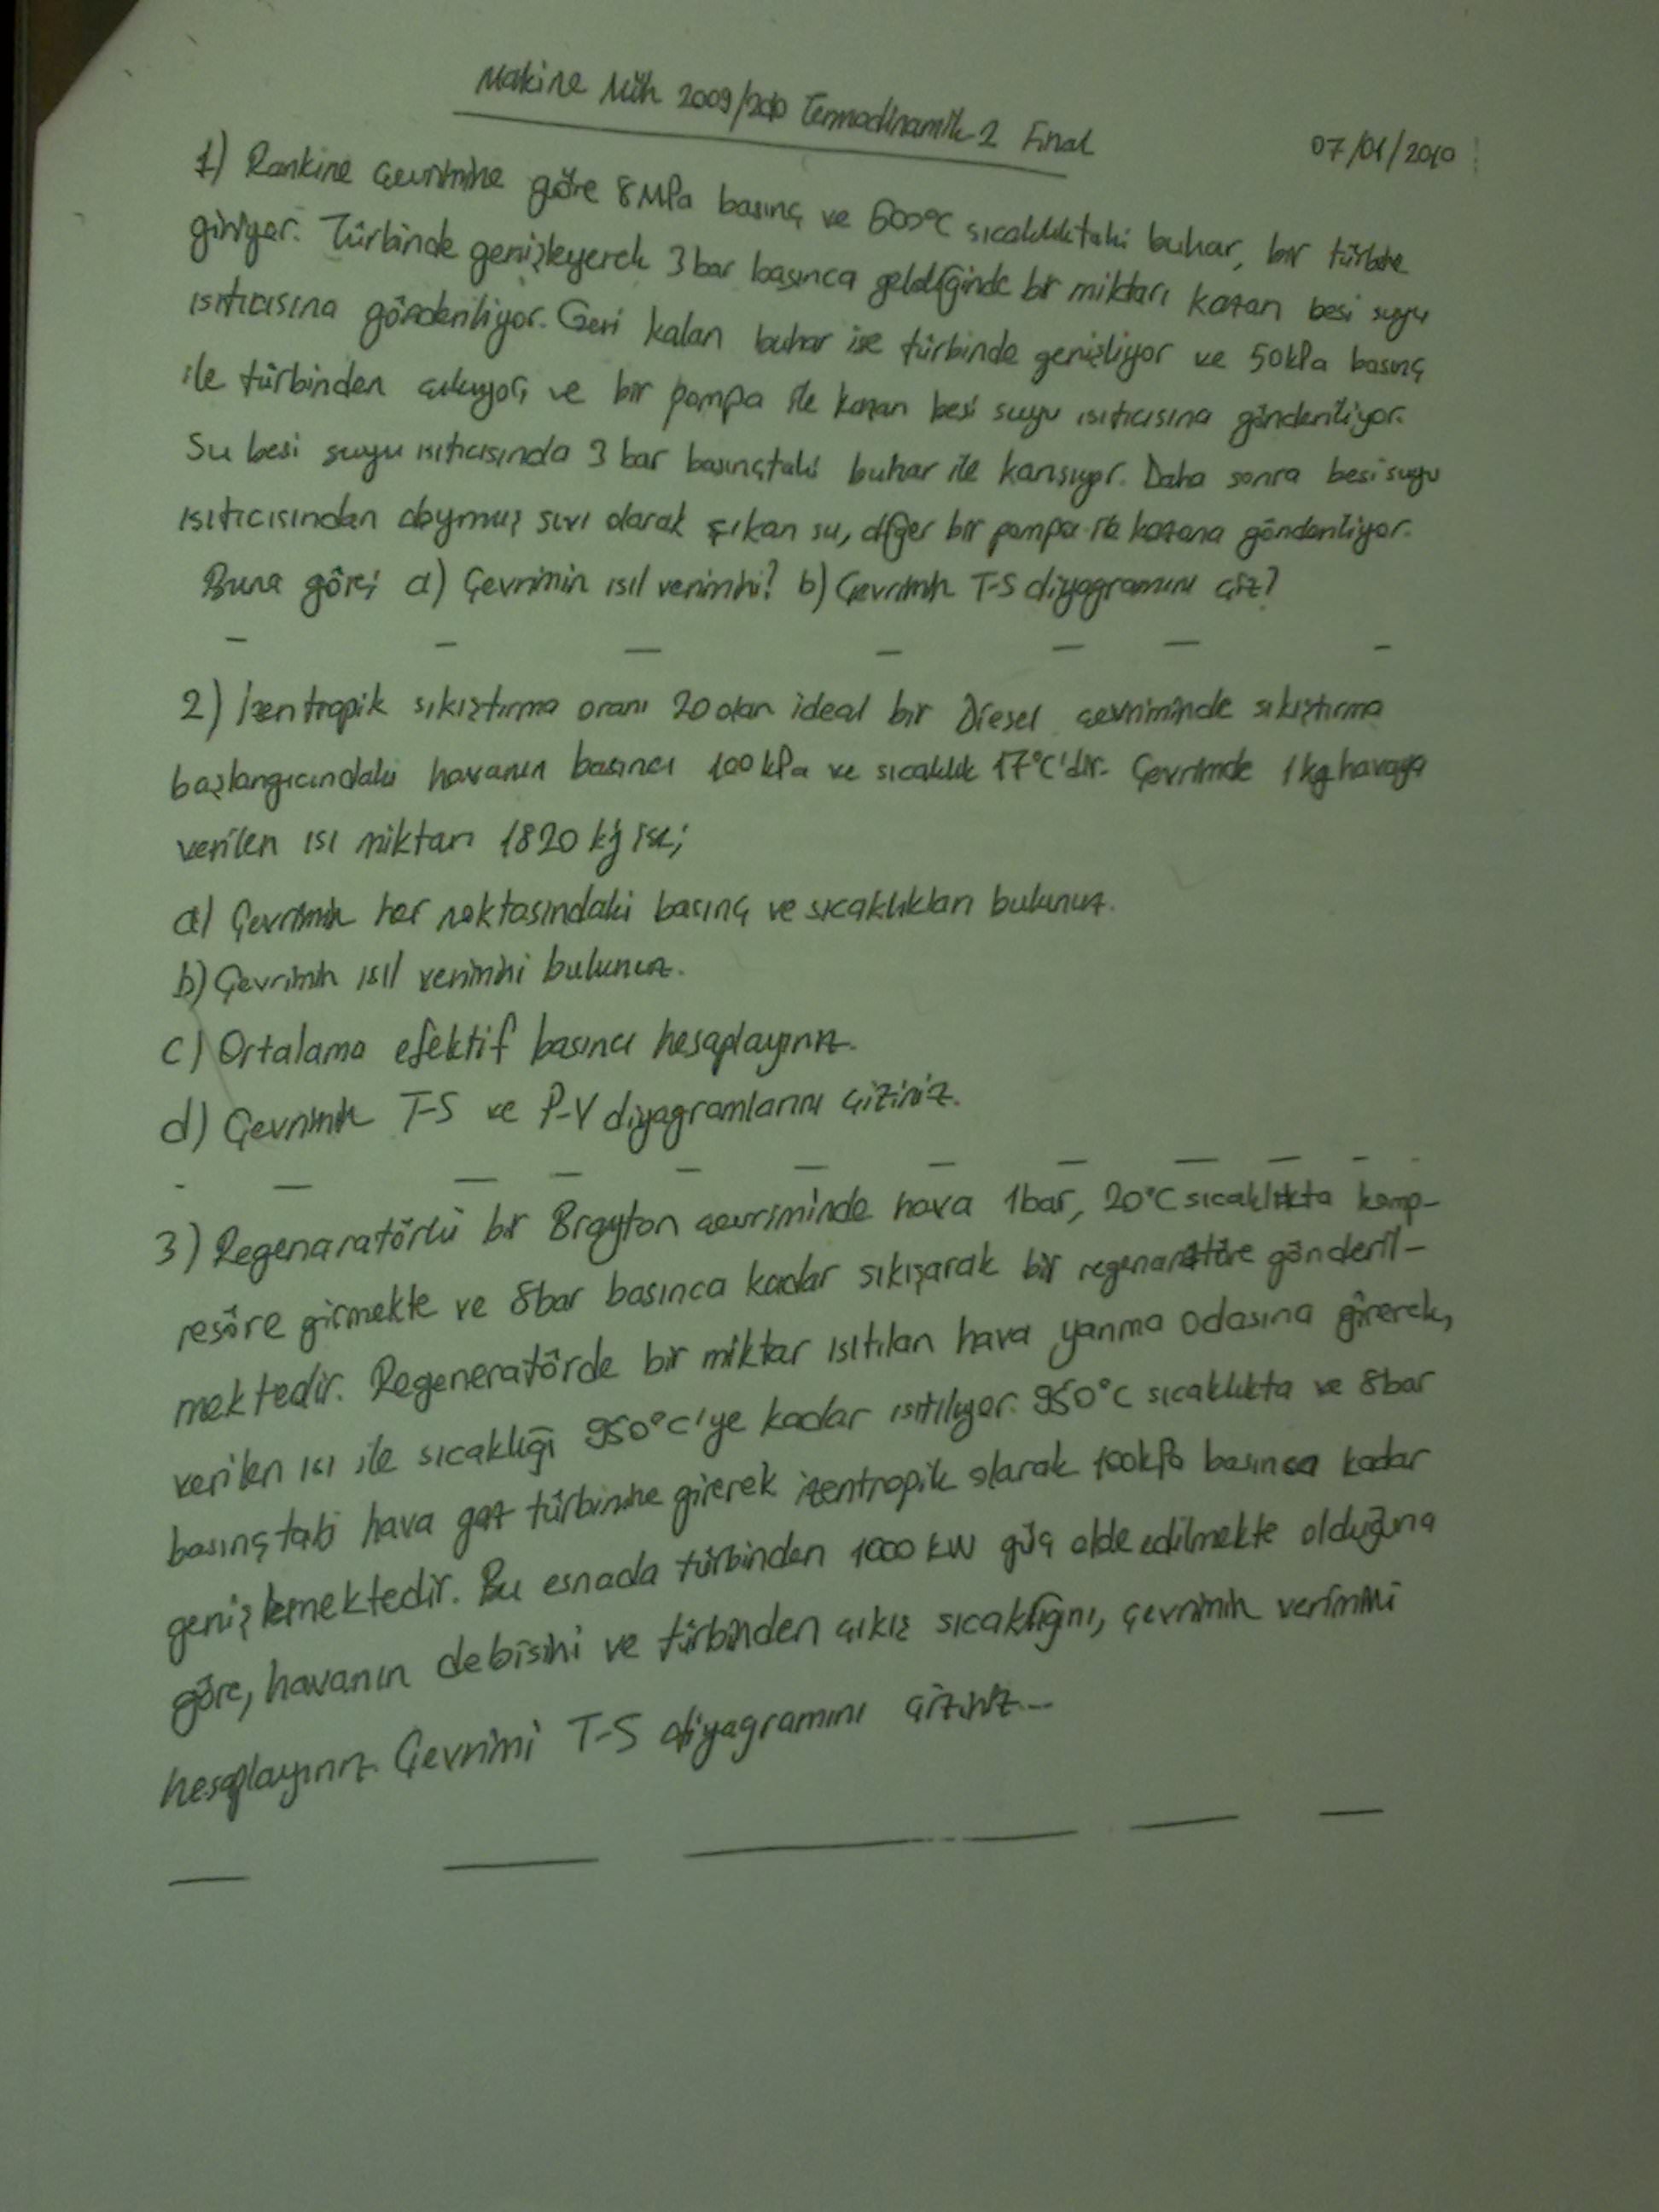 Makine Müh 2009/2010 Termodinamik-2 Final
07/01/2010
1) Rankine çevrimine göre 8 MPa basınç ve 500°C sıcaklıktaki buhar, bir türbine
giriyor. Türbinde genişleyerek 3 bar basınca geldiğinde bir miktarı kazan besi suyu
ısıtıcısına gönderiliyor. Geri kalan buhar ise türbinde genişliyor ve 50kPa basınç
ile türbinden çıkıyor, ve bir pompa ile kazan besi suyu ısıtıcısına gönderiliyor.
Su besi suyu ısıtıcısında 3 bar basınçtaki buhar ile karışıyor. Daha sonra besi suyu
ısıtıcısından doymuş sıvı olarak çıkan su, diğer bir pompa ile kazana gönderiliyor.
Buna göre; a) Çevrimin ısıl verimini? b) Çevrimin T-S diyagramını çiz?
2) İzentropik sıkıştırma oranı 20 olan ideal bir Diesel çevriminde sıkıştırma
başlangıcındaki havanın basıncı 100 kPa ve sıcaklık 17°C'dir. Çevrimde 1 kg havaya
verilen ısı miktarı 1820 kj ise;
a) Çevrimin her noktasındaki basınç ve sıcaklıkları bulunuz.
b) Çevrimin ısıl verimini bulunuz.
c) Ortalama efektif basıncı hesaplayınız.
d) Çevrimin T-S ve P-V diyagramlarını çiziniz.
3) Regenaratörlü bir Brayton çevriminde hava 1bar, 20°C sıcaklıkta komp-
resöre girmekte ve 8bar basınca kadar sıkışarak bir regenaratöre gönderil-
mektedir. Regeneratörde bir miktar ısıtılan hava yanma odasına girerek,
verilen ısı ile sıcaklığı 950°C'ye kadar ısıtılıyor. 950°C sıcaklıkta ve 8bar
basınçtaki hava gaz türbinine girerek izentropik olarak 100kPa basınca kadar
genişlemektedir. Bu esnada türbinden 1000 kW güç elde edilmekte olduğuna
göre, havanın debisini ve türbinden çıkış sıcaklığını, çevrimin verimini
hesaplayınız. Çevrimi T-S diyagramını çiziniz...